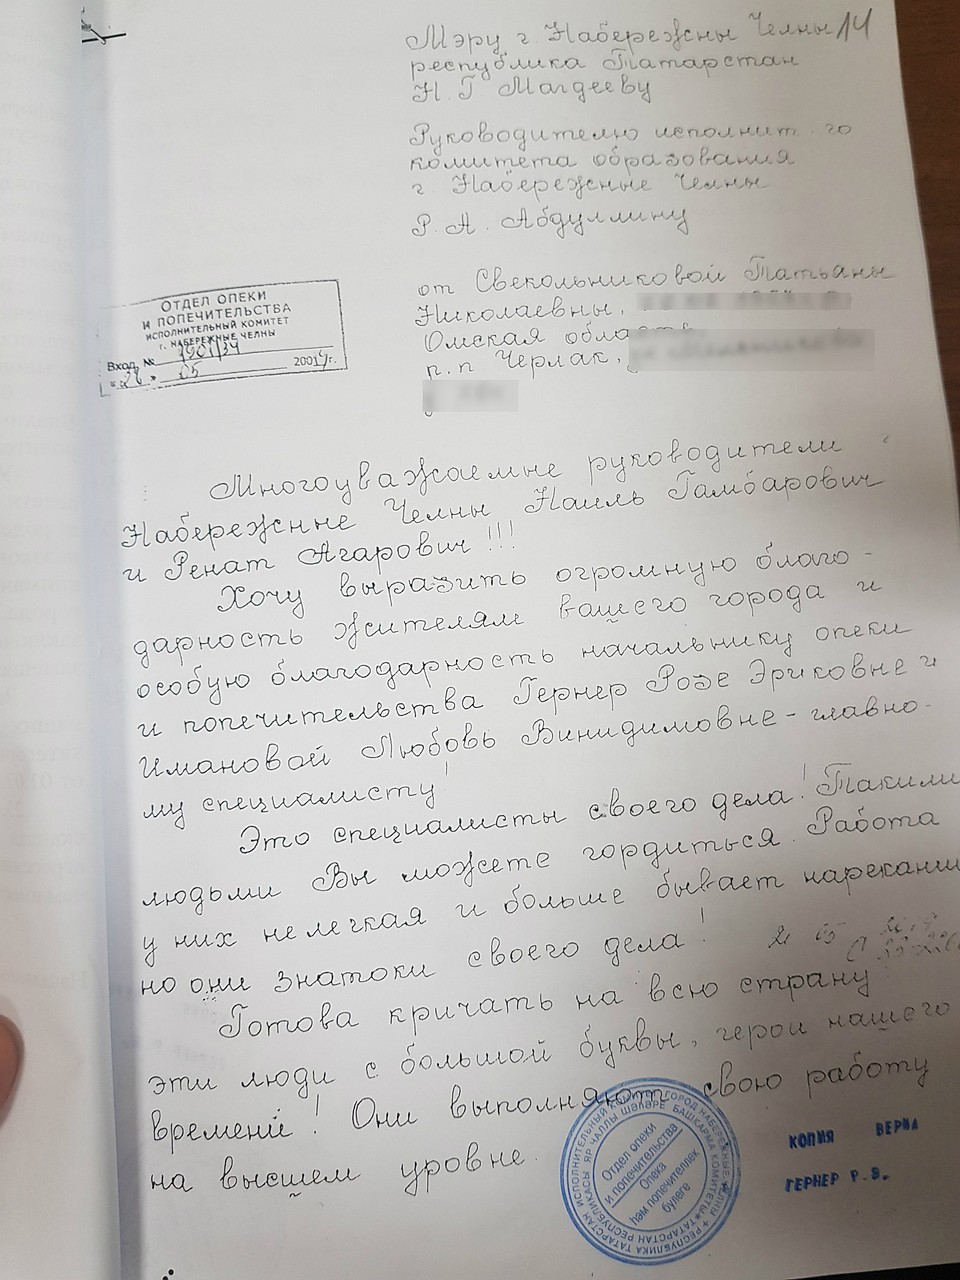 Мэру г. Набережны Челны 14
республика Татарстан
Н. Г Магдееву
Руководителю исполнит. го
комитета образования
г. Набережные Челны
Р. А. Абдуллину
от Свекольниковой Татьяны
Николаевны,
Омская область
р.п Черлак,
ОТДЕЛ ОПЕКИ
И ПОПЕЧИТЕЛЬСТВА
ИСПОЛНИТЕЛЬНЫЙ КОМИТЕТ
г. НАБЕРЕЖНЫЕ ЧЕЛНЫ
Вход. №
"28" 05 2001 г.
Многоуважаемые руководители
Набережнне Челны Наиль Гамбарович
и Ренат Агарович!!!
Хочу выразить огромную благо-
дарность жителям вашего города и
особую благодарность начальнику опеки
и попечительства Гернер Розе Эриковне и
Имановой Любовь Винидимовне - главно-
му специалисту!
Это специалисты своего дела! Такими
людьми Вы можете гордиться. Работа
у них нелегкая и больше бывает нарекани
но они знатоки своего дела!
Готова кричать на всю страну
эти люди с большой буквы, герои нашего
времени! Они выполняют свою работу
на высшем уровне.
ИСПОЛНИТЕЛЬНЫЙ КОМИТЕТ ГОРОД НАБЕРЕЖНЫЕ ЧЕЛНЫ * РЕСПУБЛИКА ТАТАРСТАН
ЯР ЧАЛЛЫ ШӘҺӘРЕ БАШКАРМА КОМИТЕТЫ * ТАТАРСТАН РЕСПУБЛИКАСЫ
Отдел опеки
и попечительства
Опека
һәм попечительлек
бүлеге
КОПИЯ ВЕРНА
ГЕРНЕР Р.Э.